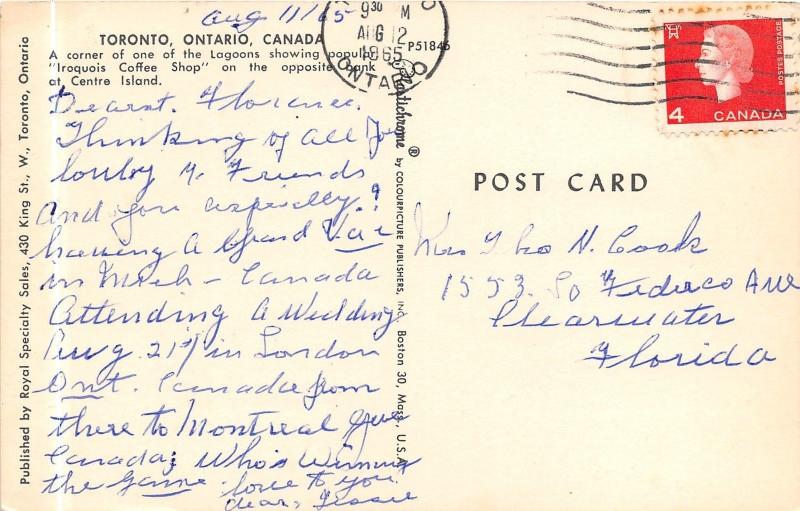 Aug 11/65
TORONTO, ONTARIO, CANADA
A corner of one of the Lagoons showing popular
"Iroquois Coffee Shop" on the opposite bank
at Centre Island.
P51846
Dearst. Florence.
Thinking of all
Friends
And you especially!
having A Grand Vac
in Mich - Canada
Attending A Wedding
Aug 21st in London
Ont. Canada from
there to Montreal Que
Canada; Who's Winning
the Game - love to you
dear, Tessie
Published by Royal Specialty Sales, 430 King St., W., Toronto, Ontario
Plastichrome ® by COLOURPICTURE PUBLISHERS, INC. Boston 30, Mass., U.S.A.
9 30 M
AUG 12
1965
ONTARIO
4
CANADA
POSTES POSTAGE
POST CARD
Mrs Theo N. Cook
1553. So Federco Ave
Clearwater
Florida